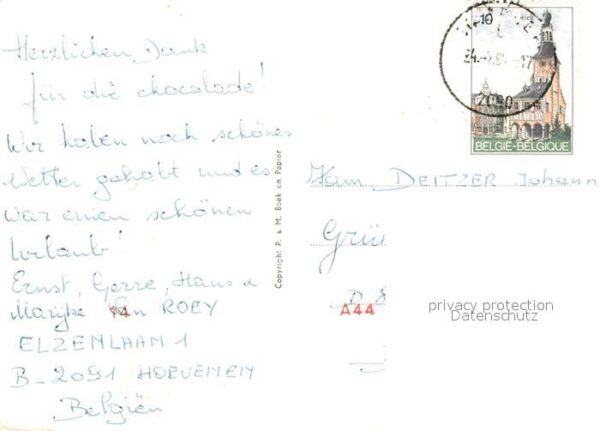 Herzlichen Dank
für die chocolade!
Wir haben noch schönes
Wetter gehabt und es
war einen schönen
Urlaub!
Ernst, Gerre, Hans &
Marijke Van ROEY
ELZENLAAN 1
B-2091 HOEVENEN
Belgiën
Copyright P. & M. Boek en Papier
10
BELGIE-BELGIQUE
2080
Fam DEITZER Johann
Grü
D 8
A44
privacy protection
Datenschutz